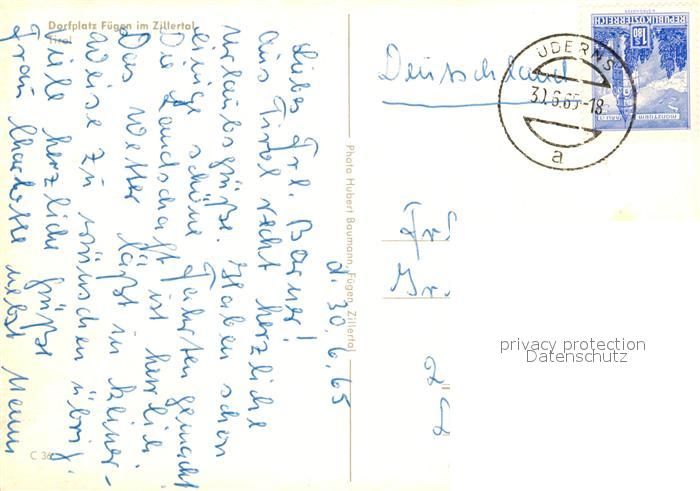 Dorfplatz Fügen im Zillertal
Tirol
d. 30.6.65
Liebes Frl. Barner!
Aus Tirol recht herzliche
Urlaubsgrüße. Haben schon
einige schöne Fahrten gemacht
Die Landschaft ist herrlich
Das Wetter läßt in keiner-
weise zu wünschen übrig.
Viele herzliche Grüße
Frau Charlotte nebst Mann
C 36
Photo Hubert Baumann, Fügen, Zillertal
Deutschland
UDERNS
30.6.65-18
a
REPUBLIK ÖSTERREICH
S 1.80
MÜNZTURM
privacy protection
Datenschutz